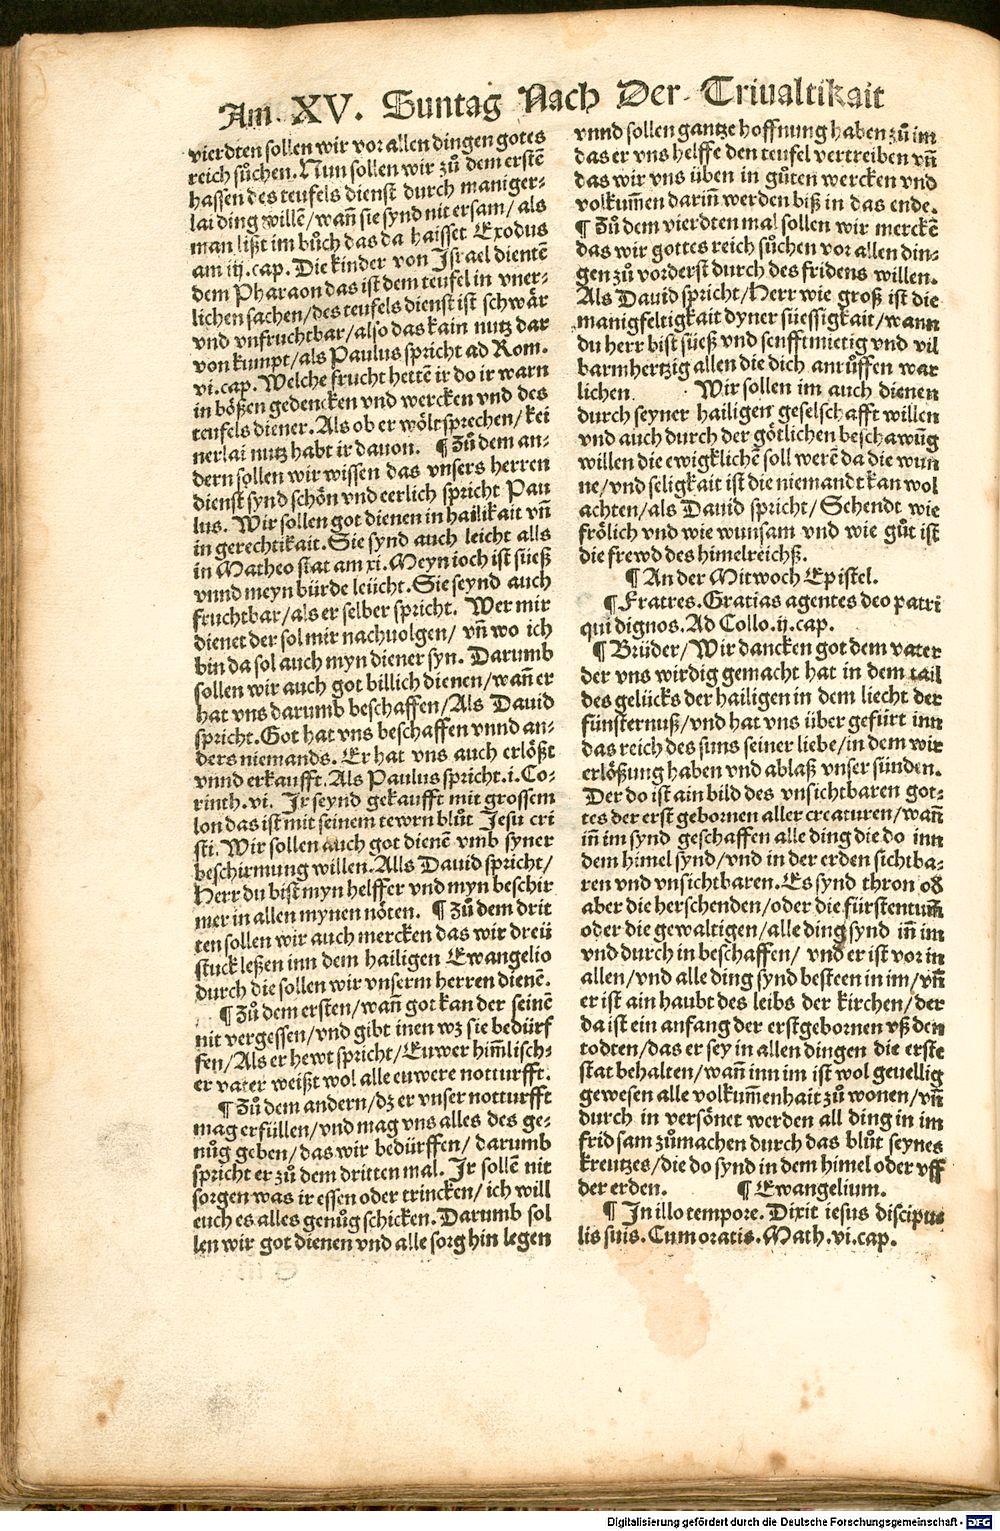 Am. XV. Suntag Nach Der Triualtikait
vierdten sollen wir vor allen dingen gotes
reich sůchen. Nun sollen wir zů dem erstē
hassen des teufels dienst durch maniger⸗
lai ding willē/ wañ sie synd nit ersam/ als
man lißt im bůch das da haisset Exodus
am iij. cap. Die kinder von Israel dientē
dem Pharaon das ist dem teufel in vner⸗
lichen sachen/ des teufels dienst ist schwär
vnd vnfruchtbar/ also das kain nutz dar
von kumpt/ als Paulus spricht ad Rom.
vi. cap. Welche frucht hettē ir do ir warn
in bößen gedencken vnd wercken vnd des
teufels diener. Als ob er wölt sprechen/ kei
nerlai nutz habt ir dauon. ¶ Zů dem an⸗
dern sollen wir wissen das vnsers herren
dienst synd schön vnd eerlich spricht Pau
lus. Wir sollen got dienen in hailikait vñ
in gerechtikait. Sie synd auch leicht alls
in Matheo stat am xi. Meyn ioch ist süeß
vnnd meyn bürde leücht. Sie seynd auch
fruchtbar/ als er selber spricht. Wer mir
dienet der sol mir nachuolgen/ vñ wo ich
bin da sol auch myn diener syn. Darumb
sollen wir auch got billich dienen/ wañ er
hat vns darumb beschaffen/ Als Dauid
spricht. Got hat vns beschaffen vnnd an⸗
ders niemands. Er hat vns auch erlößt
vnnd erkaufft. Als Paulus spricht. i. Co⸗
rinth. vi. Ir seynd gekaufft mit grossem
lon das ist mit seinem tewrn blůt Jesu cri
sti. Wir sollen auch got dienē vmb syner
beschirmung willen. Alls Dauid spricht/
Herr du bist myn helffer vnd myn beschir
mer in allen mynen nöten. ¶ Zů dem drit
ten sollen wir auch mercken das wir dreü
stuck leßen inn dem hailigen Ewangelio
durch die sollen wir vnserm herren dienē.
¶ Zů dem ersten/ wañ got kan der seinē
nit vergessen/ vnd gibt inen wz sie bedürf
fen/ Als er hewt spricht/ Euwer him̄lisch⸗
er vater weißt wol alle euwere notturfft.
¶ Zů dem andern/ dz er vnser notturfft
mag erfüllen/ vnd mag vns alles des ge⸗
nůg geben/ das wir bedürffen/ darumb
spricht er zů dem dritten mal. Ir sollē nit
sorgen was ir essen oder trincken/ ich will
euch es alles genůg schicken. Darumb sol
len wir got dienen vnd alle sorg hin legen
vnnd sollen gantze hoffnung haben zů im
das er vns helffe den teufel vertreiben vñ
das wir vns üben in gůten wercken vnd
volkum̄en darin̄ werden biß in das ende.
¶ Zů dem vierdten mal sollen wir merckē
das wir gottes reich sůchen vor allen din⸗
gen zů vorderst durch des fridens willen.
Als Dauid spricht/ Herr wie groß ist die
manigfeltigkait dyner süessigkait/ wann
du herr bist süeß vnd senfftmietig vnd vil
barmhertzig allen die dich anrůffen war
lichen. Wir sollen im auch dienen
durch seyner hailigen geselschafft willen
vnd auch durch der götlichen beschawūg
willen die ewigklichē soll werē da die wun
ne/ vnd seligkait ist die niemandt kan wol
achten/ als Dauid spricht/ Sehendt wie
frölich vnd wie wunsam vnd wie gůt ist
die frewd des himelreichß.
¶ An der Mitwoch Epistel.
¶ Fratres. Gratias agentes deo patri
qui dignos. Ad Collo. ij. cap.
¶ Brüder/ Wir dancken got dem vater
der vns wirdig gemacht hat in dem tail
des gelücks der hailigen in dem liecht der
fünsternuß/ vnd hat vns über gefürt inn
das reich des suns seiner liebe/ in dem wir
erlößung haben vnd ablaß vnser sünden.
Der do ist ain bild des vnsichtbaren got⸗
tes der erst gebornen aller creaturen/ wañ
in̄ im synd geschaffen alle ding die do inn
dem himel synd/ vnd in der erden sichtba⸗
ren vnd vnsichtbaren. Es synd thron oď
aber die herschenden/ oder die fürstentum̄
oder die gewaltigen/ alle ding synd in̄ im
vnd durch in beschaffen/ vnd er ist vor in
allen/ vnd alle ding synd besteen in im/ vñ
er ist ain haubt des leibs der kirchen/ der
da ist ein anfang der erstgebornen vß den
todten/ das er sey in allen dingen die erste
stat behalten/ wañ inn im ist wol geuellig
gewesen alle volkum̄enhait zů wonen/ vñ
durch in versönet werden all ding in im
fridsam zůmachen durch das blůt seynes
kreutzes/ die do synd in dem himel oder vff
der erden. ¶ Ewangelium.
¶ In illo tempore. Dixit iesus discipu
lis suis. Cum oratis. Math. vi. cap.
Digitalisierung gefördert durch die Deutsche Forschungsgemeinschaft - DFG